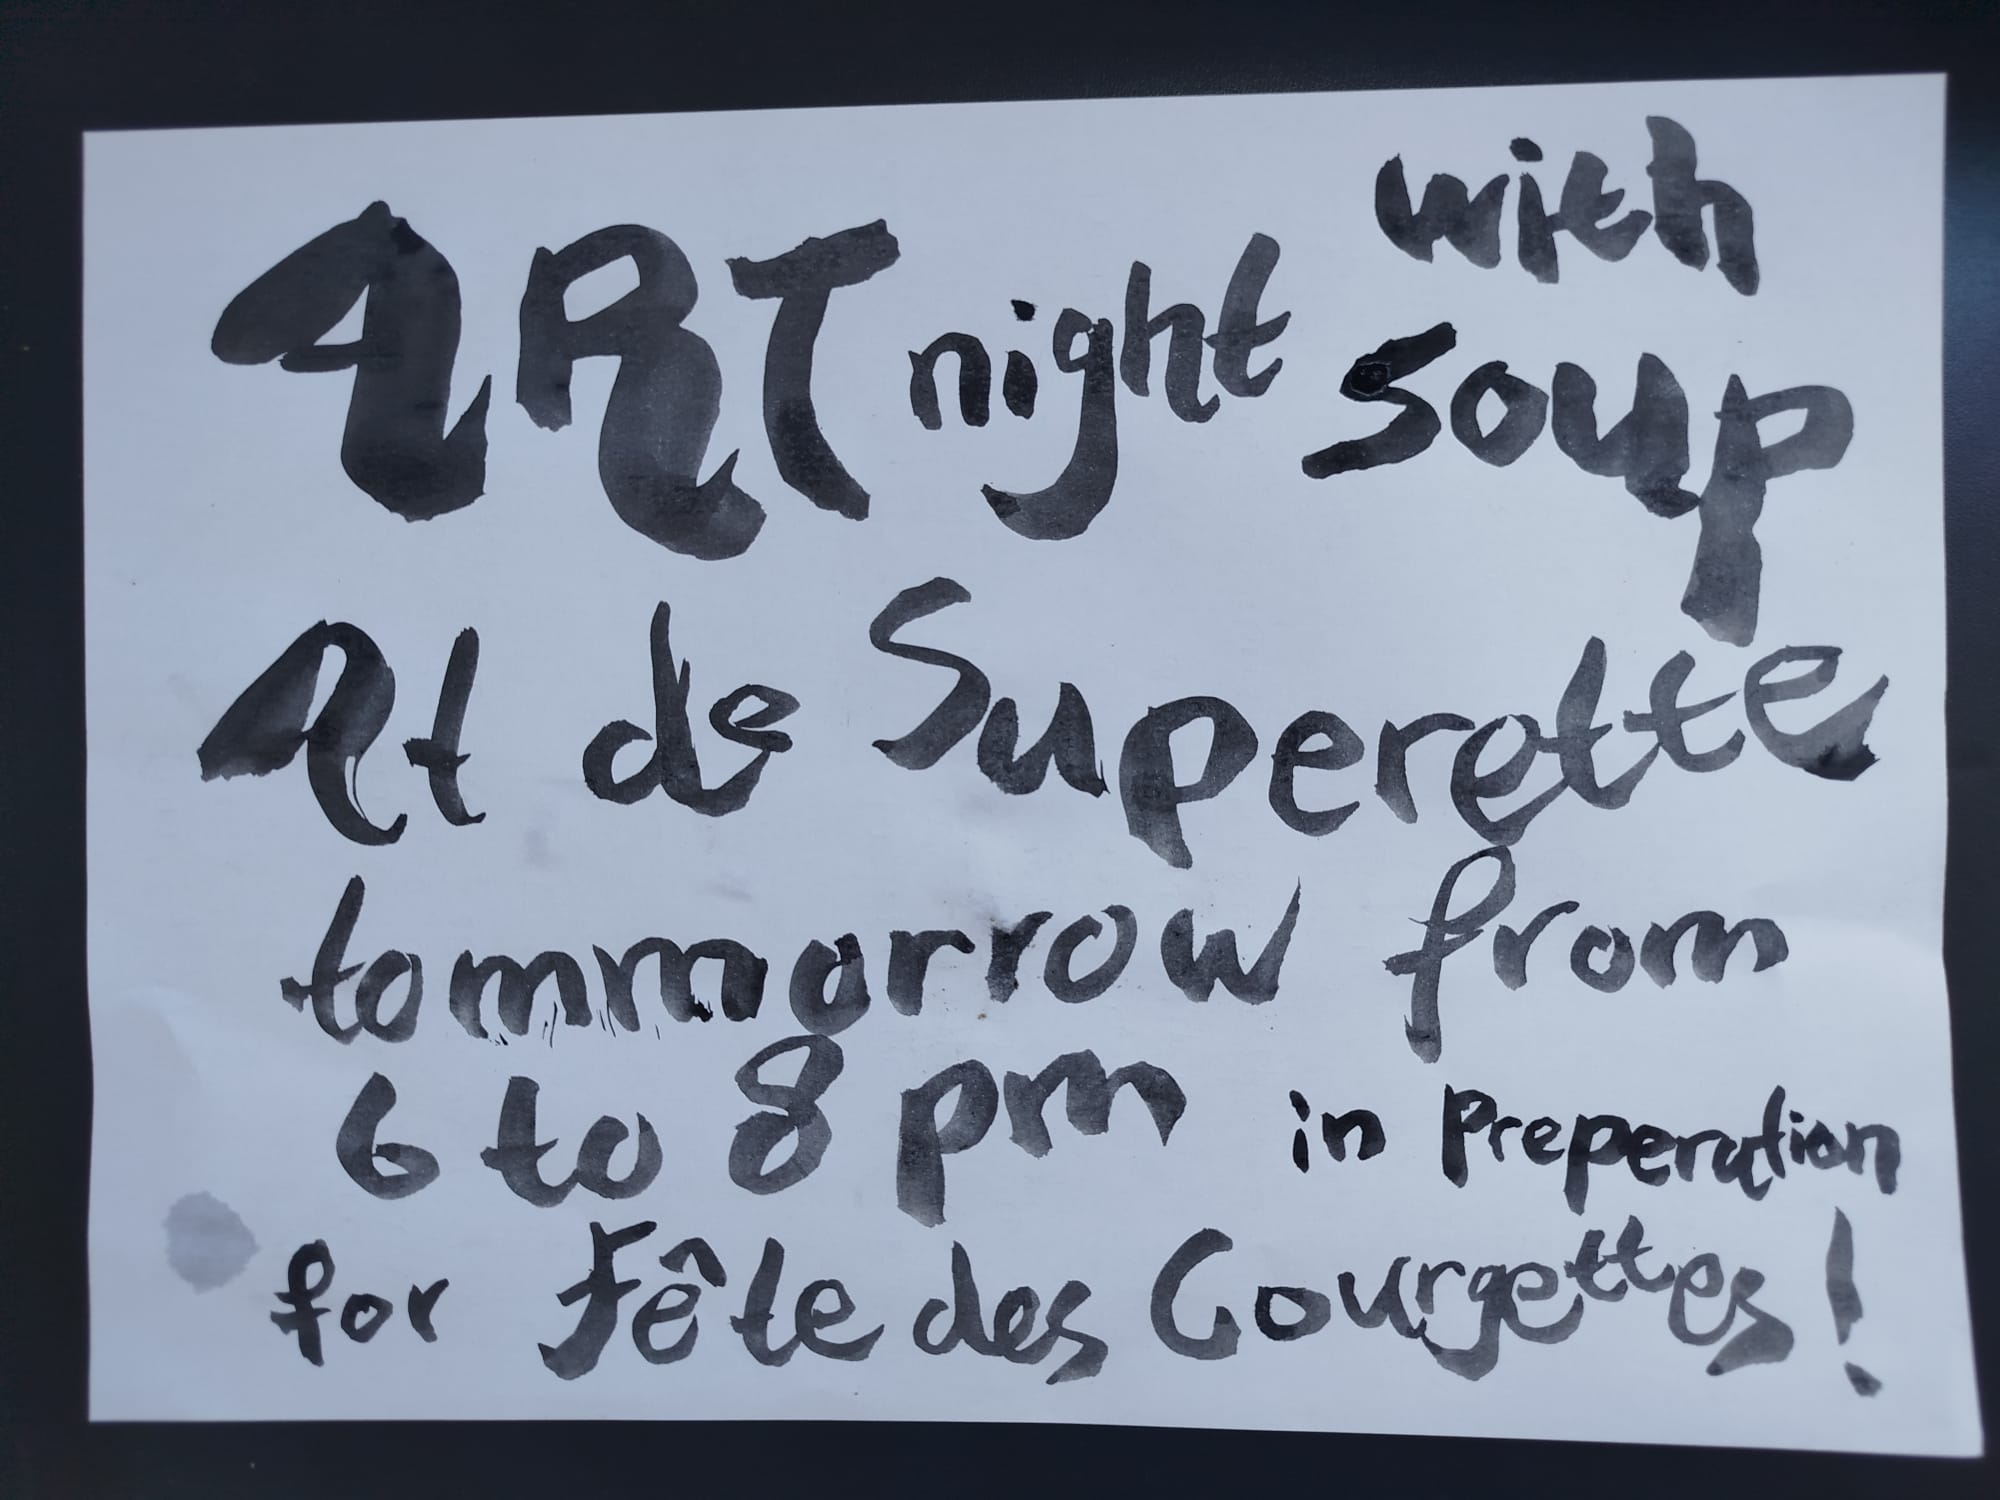 ART night with soup
At de Superette
tommorrow from
6 to 8 pm in Preperation
for Fête des Courgettes!